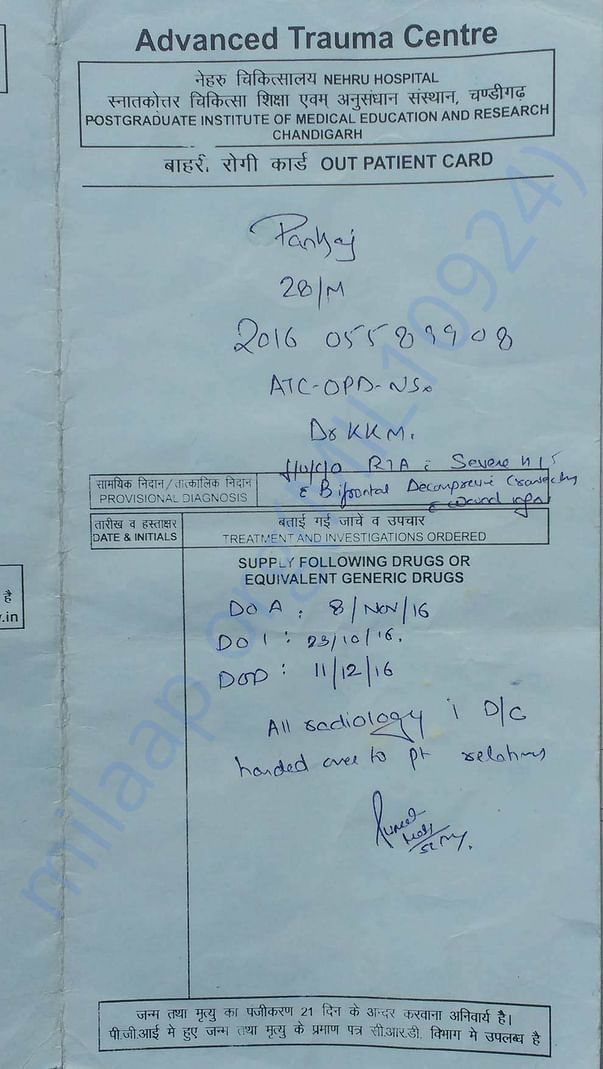 Advanced Trauma Centre
नेहरु चिकित्सालय NEHRU HOSPITAL
स्नातकोत्तर चिकित्सा शिक्षा एवम् अनुसंधान संस्थान, चण्डीगढ़
POSTGRADUATE INSTITUTE OF MEDICAL EDUCATION AND RESEARCH
CHANDIGARH
बाहरी रोगी कार्ड OUT PATIENT CARD
Pankaj
28/M
2016 05589908
ATC-OPD-NSx
Dr KKM.
RTA Severe
सामयिक निदान/तात्कालिक निदान
PROVISIONAL DIAGNOSIS
Bifrontal Decompressive
wound
तारीख व हस्ताक्षर
DATE & INITIALS
बताई गई जाचे व उपचार
TREATMENT AND INVESTIGATIONS ORDERED
SUPPLY FOLLOWING DRUGS OR
EQUIVALENT GENERIC DRUGS
DOA : 8/NOV/16
DOI : 23/10/16.
DOD : 11/12/16
All radiology D/C
handed over to pt relatives
जन्म तथा मृत्यु का पंजीकरण 21 दिन के अन्दर करवाना अनिवार्य है।
पी.जी.आई मे हुए जन्म तथा मृत्यु के प्रमाण पत्र सी.आर.डी. विभाग मे उपलब्ध है
है
.in
milaap.org (MIL10924)